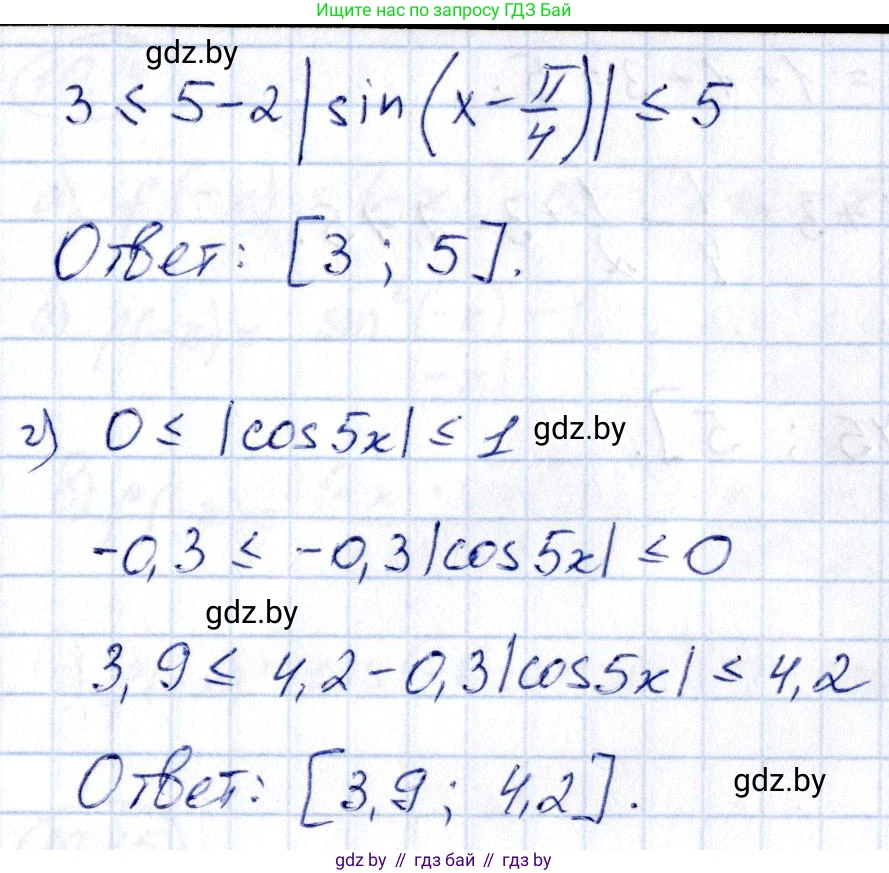 Ищите нас по запросу ГДЗ Бай
gdz.by
3 ≤ 5 - 2|sin(x - π/4)| ≤ 5
Ответ: [3 ; 5].
г) 0 ≤ |cos5x| ≤ 1 gdz.by
-0,3 ≤ -0,3|cos5x| ≤ 0
gdz.by
3,9 ≤ 4,2 - 0,3|cos5x| ≤ 4,2
Ответ: [3,9 ; 4,2]. gdz.by
gdz by // гдз бай // гдз by